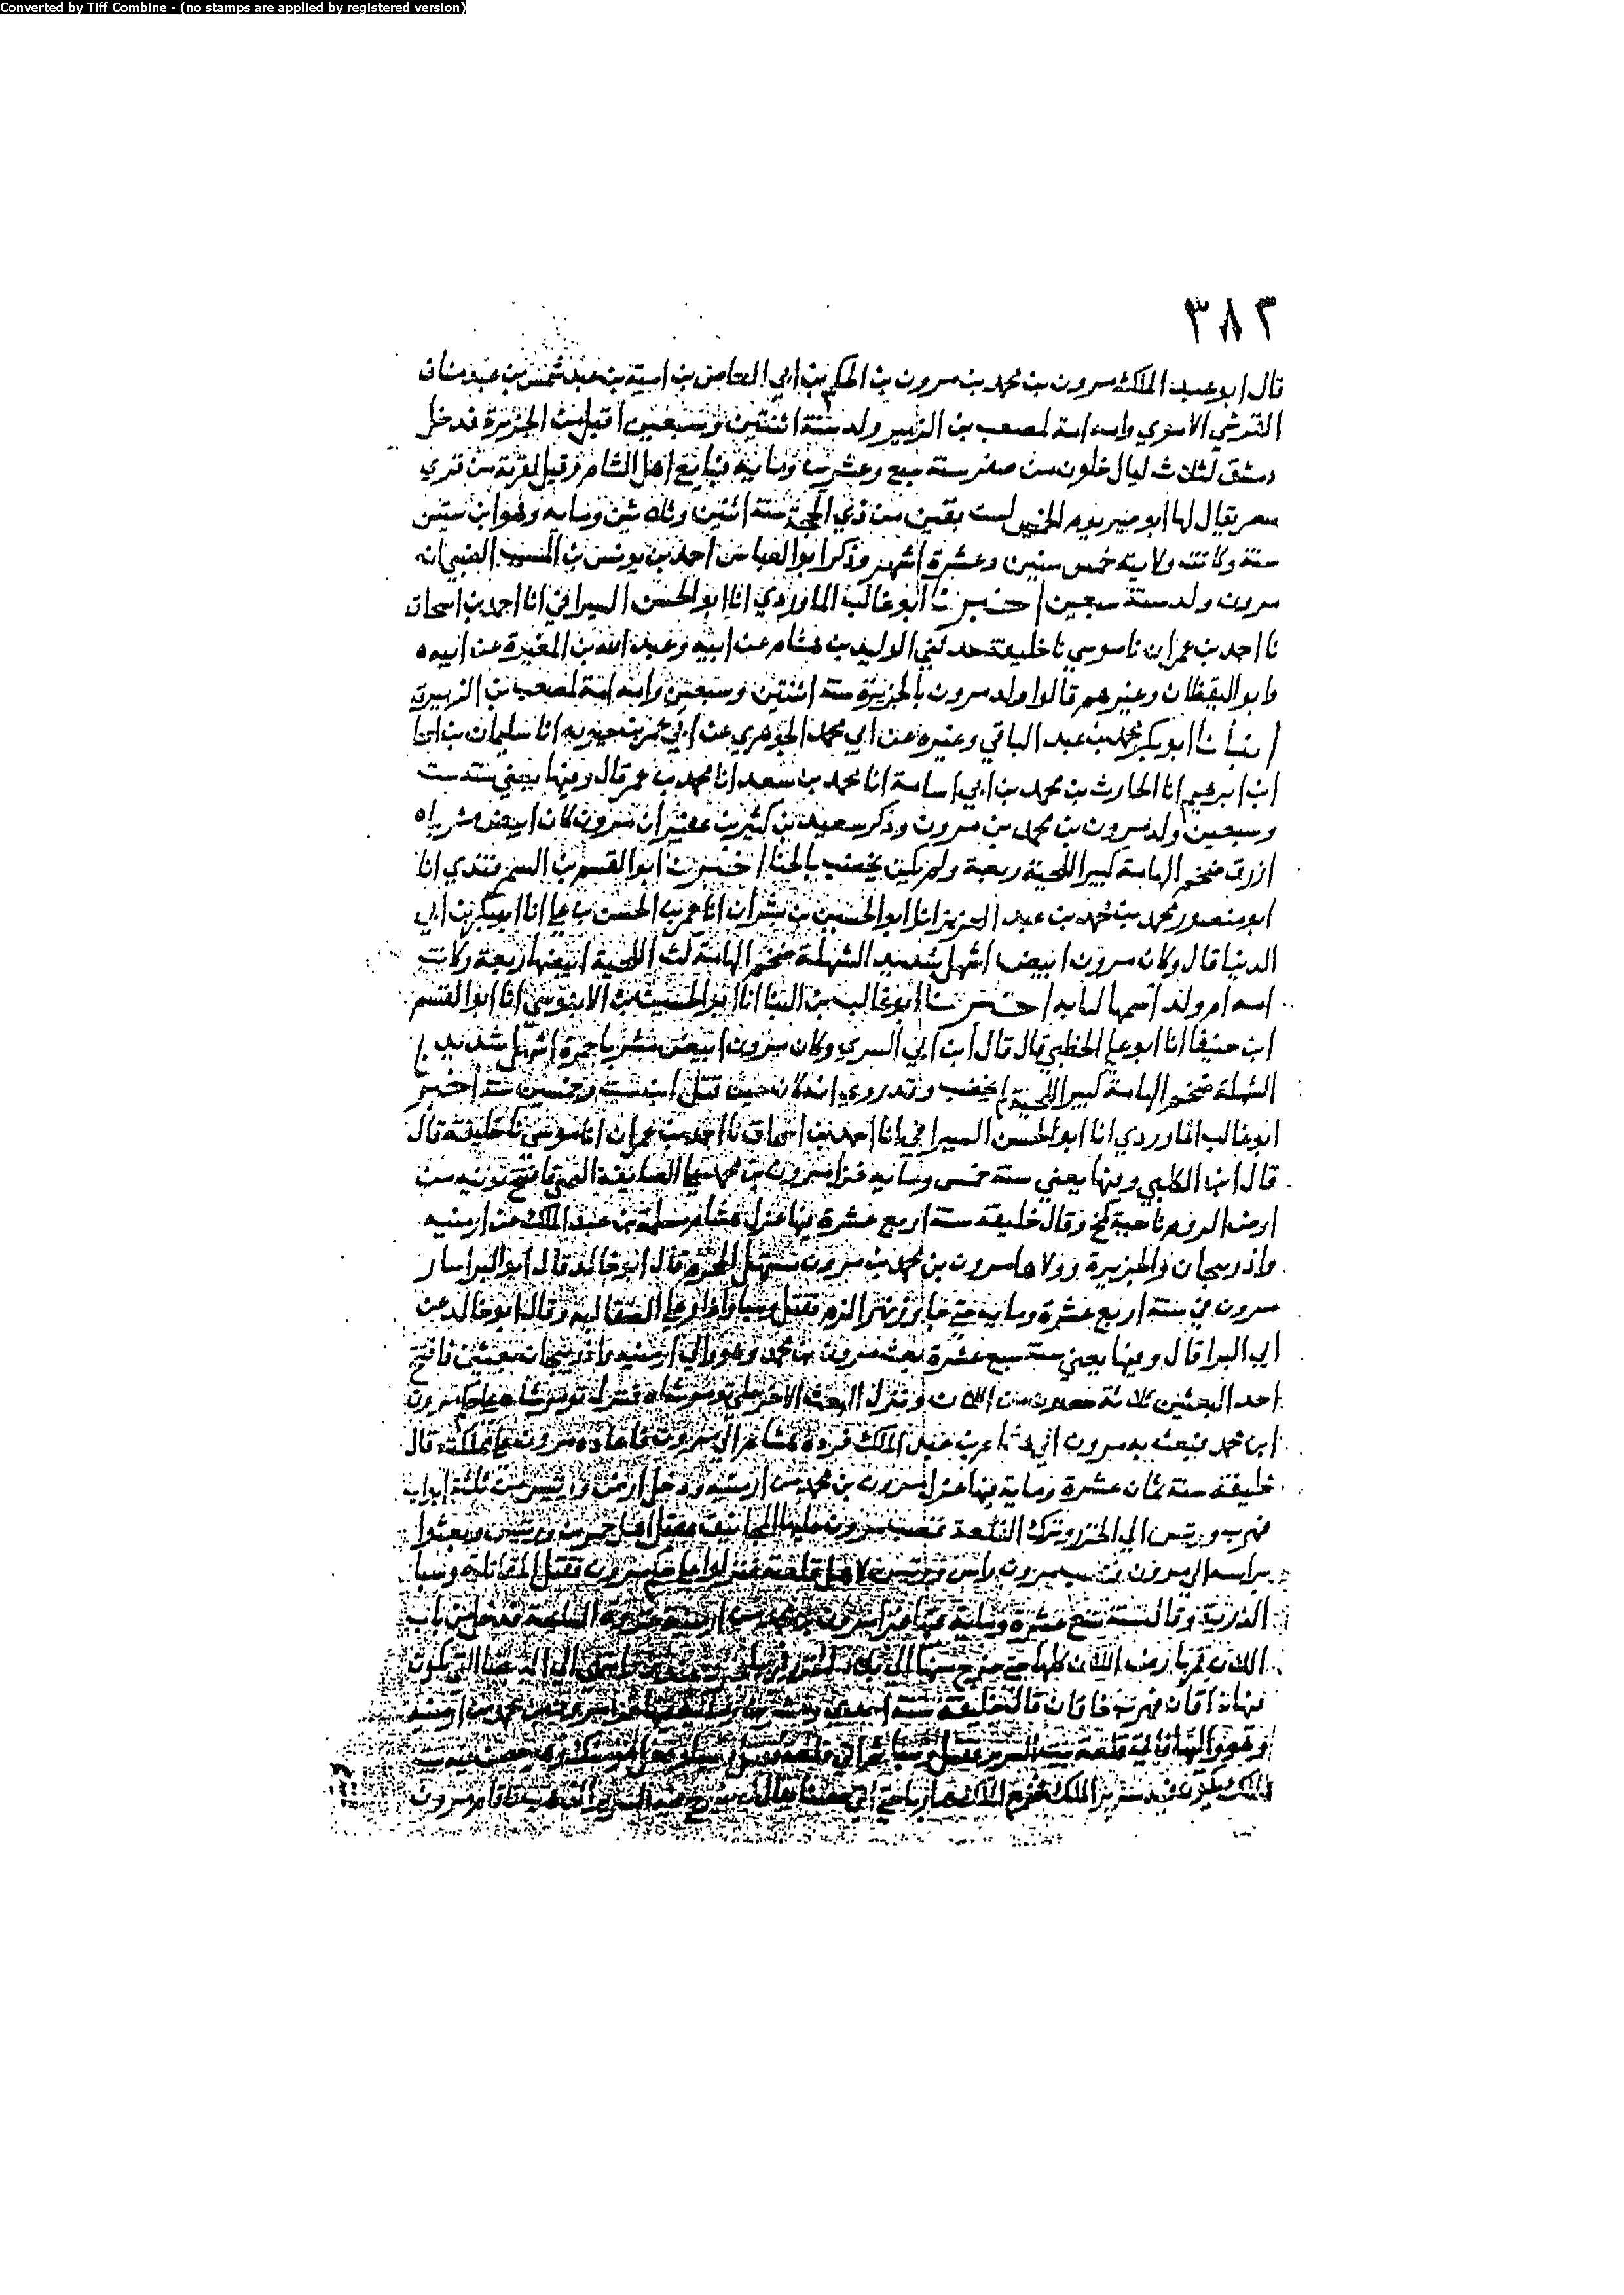 Converted by Tiff Combine - (no stamps are applied by registered version)
٣٨٢
قال ابو عبد الملك مرون بن محمد بن مرون بن الحكم بن ابي العاص بن امية بن عبد شمس بن عبد مناف
القرشي الاموي وامه امة لمصعب بن الزبير ولد سنة اثنتين وسبعين اقبل من الجزيرة فدخل
دمشق لثلاث ليال خلون من صفر سنة سبع وعشرين وماية فبايع اهل الشام وقيل لقرية من قري
مصر يقال لها ابو صير يوم الخميس لست بقين من ذي الحجة سنة اثنتين وثلاثين وماية وهو ابن ستين
سنة وكانت ولايته خمس سنين وعشرة اشهر وذكر ابو العباس احمد بن يونس بن المسيب الضبي انه
مرون ولد سنة سبعين اخبرنا ابو غالب الماوردي انا ابو الحسن السيرافي انا احمد بن اسحاق
نا احمد بن عمران نا موسي نا خليفة حدثني الوليد بن هشام عن ابيه وعبد الله بن المغيرة عن ابيه
وابو اليقظان وغيرهم قالوا ولد مرون بالجزيرة سنة اثنتين وسبعين وامه امة لمصعب بن الزبير
انبانا ابو بكر محمد بن عبد الباقي وغيره عن ابي محمد الجوهري عن ابي عمر بن حيويه انا سليمان بن
ابن ابرهيم انا الحارث بن محمد بن ابي اسامة انا محمد بن سعد انا محمد بن عمر قال وفيها يعني سنة ست
وسبعين ولد مرون بن محمد بن مرون وذكر سعيد بن كثير بن عفير ان مرون كان ابيض مشربا
ازرق ضخم الهامة كبير اللحية ربعة ولم يكن يخضب بالحنا اخبرنا ابو القسم بن السمرقندي انا
ابو منصور محمد بن محمد بن عبد العزيز انا ابو الحسين بن بشران انا عمر بن الحسن بن علي انا ابو بكر بن ابي
الدنيا قال وكان مرون ابيض اشهل شديد الشهلة ضخم الهامة كث اللحية ابيضها ربعة وكانت
امه ام ولد اسمها لبابه اخبرنا ابو غالب بن البنا انا ابو الحسين بن الابنوسي انا ابو القسم
ابن حنيفا انا ابو علي الخطبي قال قال ابن ابي السري وكان مرون ابيض مشربا حمرة اشهل شديد
الشهلة ضخم الهامة كبير اللحية لم يخضب وقد روي انه كان حين قتل ابن ست وخمسين سنة اخبر
ابو غالب الماوردي انا ابو الحسن السيرافي انا احمد بن اسحاق نا احمد بن عمران انا موسي نا خليفة قال
قال ابن الكلبي وفيها يعني سنة خمس وماية غزا مرون بن محمد علي الصايفة اليمني فافتتح قونيه من
ارض الروم ناحية كمخ وقال خليفة سنة اربع عشرة فيها عزل هشام مسلمة بن عبد الملك عن ارمنيه
واذربيجان والجزيرة وولاها مرون بن محمد بن مرون مستهل المحرم قال ابو خالد قال ابو البرا سار
مرون في سنة اربع عشرة وماية حتي جاوز نهر الزم فقتل وسبا واغار علي الصقالبه وقال ابو خالد عن
ابي البرا قال وفيها يعني سنة سبع عشرة بعث مرون بن محمد وهو والي ارمنيه واذربيجان بعثين فافتتح
احد البعثين ثلاثة حصون من اللان ونزل البعث الاخر علي تومنشاه فنزل تومنشاه علي حكم مرون
ابن محمد فبعث به مرون الي هشام بن عبد الملك فرده هشام الي مرون فاعاده مرون علي مملكته قال
خليفة سنة ثمان عشرة وماية فيها غزا مرون بن محمد من ارمنيه ودخل ارض ورتنيس من ثلثة ابواب
فهرب ورتنيس الي الخزر وترك القلعة فنصب مرون عليها المجانيق فقتل اهل خمرين ورتنيس وبعثوا
براسه الي مرون فنصب مرون راس ورتنيس لاهل قلعته فنزلوا علي حكم مرون فقتل المقاتلة وسبا
الذرية وقال سنة تسع عشرة وماية فيها غزا مرون بن محمد من ارمنية غزوة السابحة فدخل من باب
اللان فمر بارض اللان كلها حتي خرج منها الي بلاد الخزر فمر انتهي الي البيضا التي يكون
فيها خاقان فهرب خاقان قال خليفة سنة احدي وعشرين وماية فيها غزا مرون بن محمد من ارمنيه
وهو واليها فاتي قلعة بيت السرير فقتل وسبا ثم اتي قلعة فقتل وسبا ودخل غومسك وهو حصن فيه بيت
الملك يكون فيه سرير الملك فخرج الملك هاربا حتي اتي حصنا يقال له فيه السرير الذهب فاقام مرون